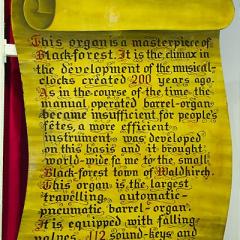 This organ is a masterpiece of
Black-forest. It is the climax in
the development of the musical-
clocks created 200 years ago.
As in the course of the time the
manual operated barrel-organ
became insufficient for people's
fêtes, a more efficient
instrument was developed
on this basis and it brought
world-wide fame to the small
Black-forest town of Waldkirch.
This organ is the largest
travelling automatic-
pneumatic barrel-organ.
It is equipped with falling
valves, 112 sound-keys and